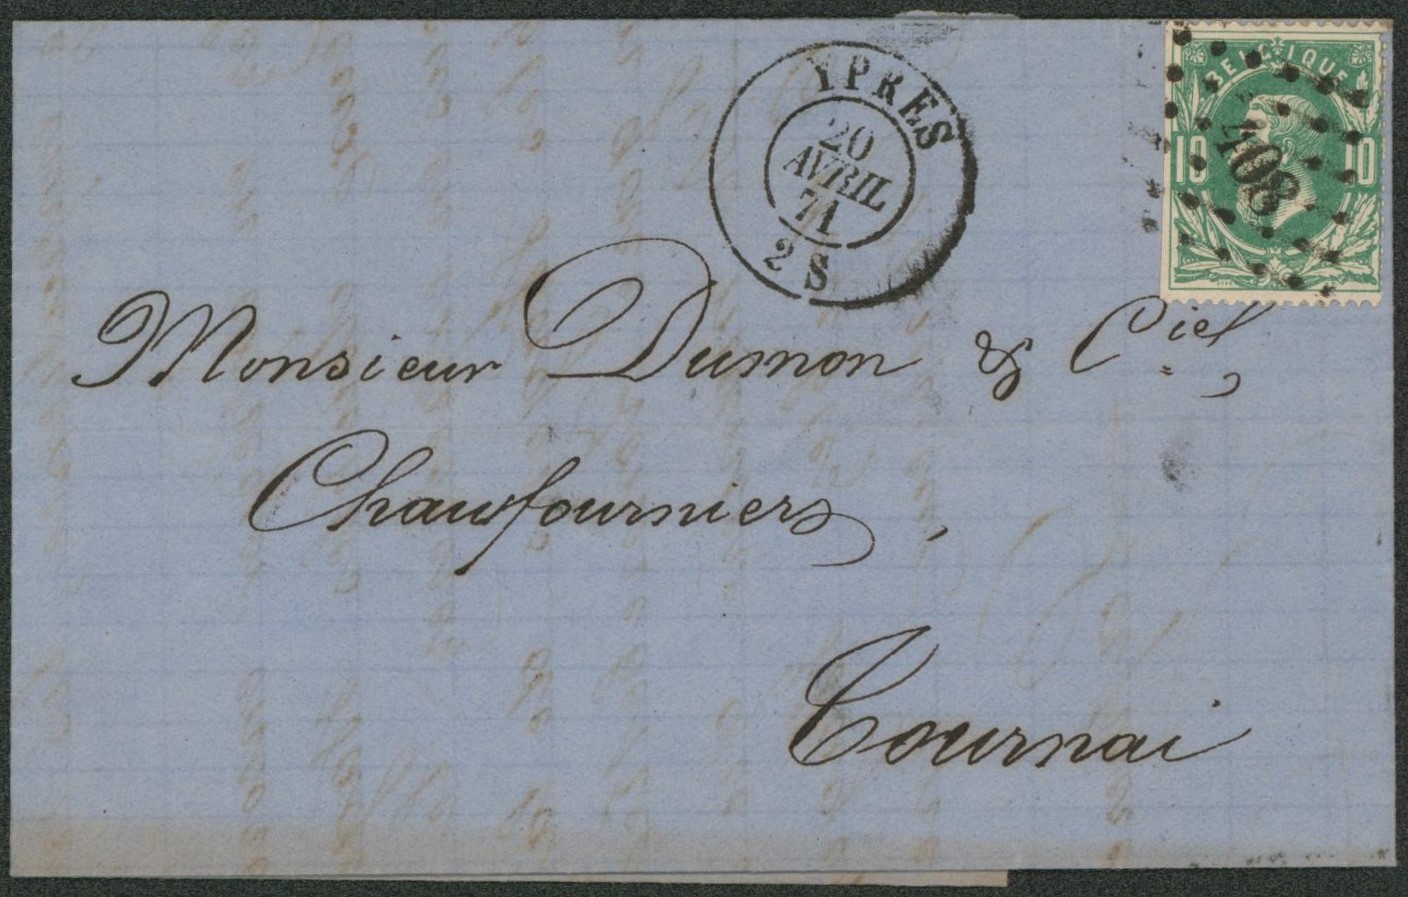 YPRES
20
AVRIL
71
2 S
BELGIQUE
10 10
408
Monsieur Dumon & Cie,
Chaufourniers,
Tournai